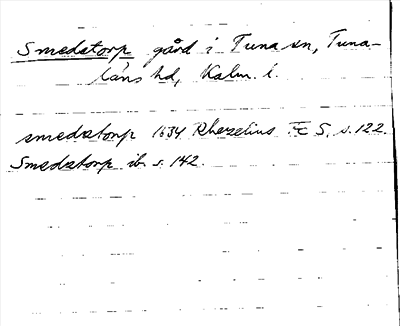 Smedstorp gård i Tuna sn, Tuna-
läns hd, Kalm. l.
smedstorp 1634 Rhezelius F c 5, s. 122.
Smedstorp ib. s. 142.